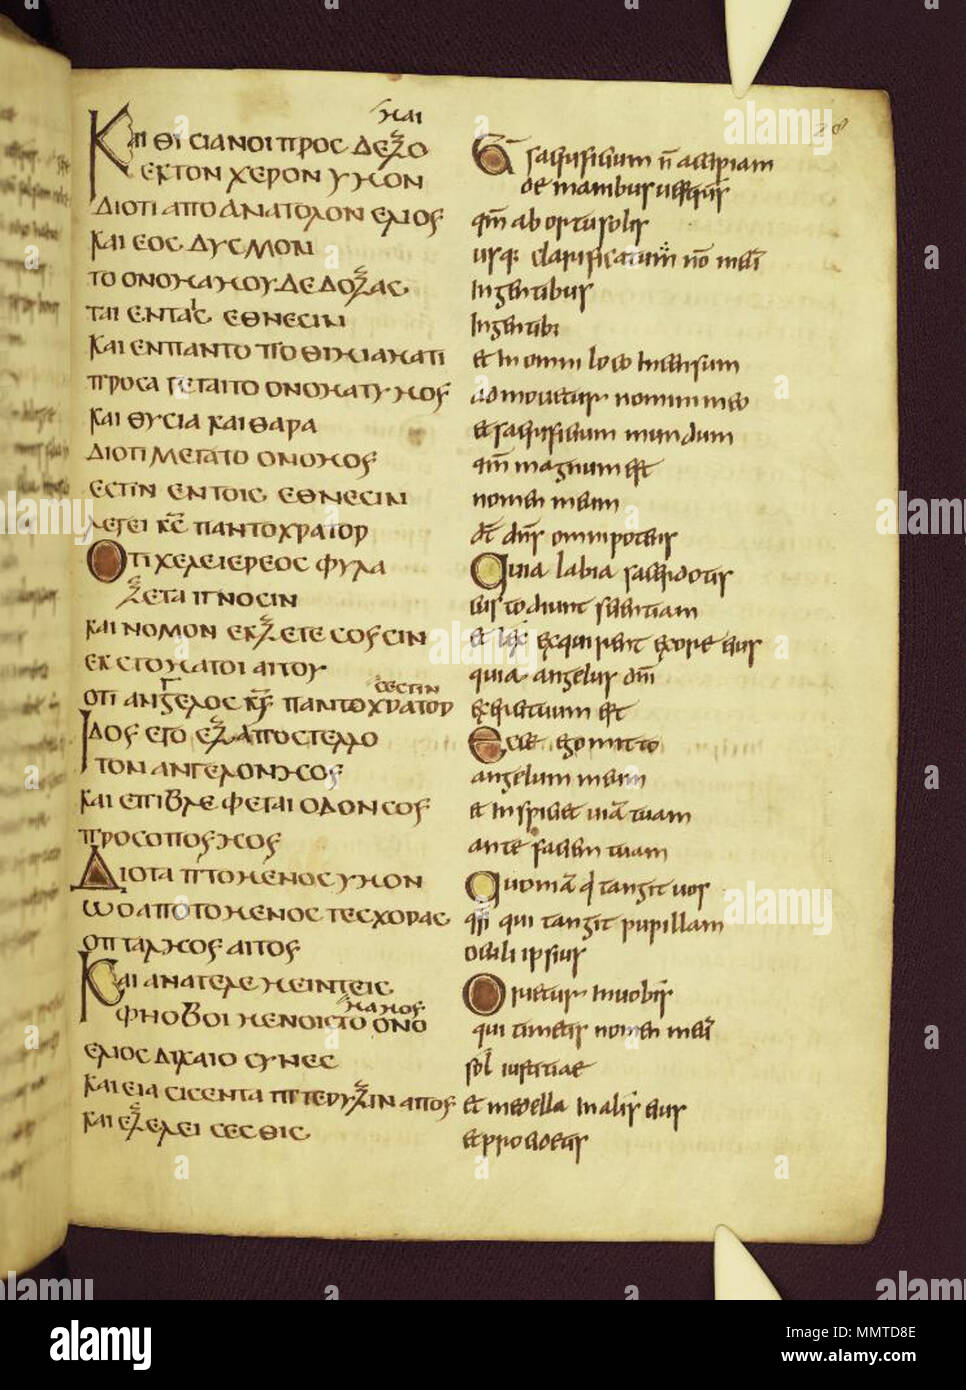 28
ΚΑΙ
ΚΑΙ ΘΙ CΙΑΝΟΙ ΠΡΟC ΔΕΞΟ
ΕΚΤΟΝ ΧΕΡΟΝ ΥΜΟΝ
ΔΙΟΤΙ ΑΠΟ ΑΝΑΤΟΛΟΝ ΕΛΙΟS
ΚΑΙ ΕΟC ΔΥCΜΟΝ
ΤΟ ΟΝΟΜΑΜΟΥ ΔΕΔΟΞΑC
ΤΑΙ ΕΝΤΑΙC ΕΘΝΕCΙΝ
ΚΑΙ ΕΝΠΑΝΤΟ
ΠΡΟCΑ ΓΕΤΑΙΤΟ ΟΝΟΜΑΤΙ ΜΟS
ΚΑΙ ΘΥCΙΑ ΚΑΙ ΘΑΡΑ
ΔΙΟΤΙ ΜΕΓΑΤΟ ΟΝΟΜΟS
ΕCΤΙΝ ΕΝΤΟΙC ΕΘΝΕCΙΝ
ΛΕΓΕΙ ΚC ΠΑΝΤΟΚΡΑΤΟΡ
ΟΤΙ ΧΕΛΕΙΕΡΕΟC ΦΥΛΑ
ΞΕΤΑΙ ΓΝΟCΙΝ
ΚΑΙ ΝΟΜΟΝ ΕΚΞΕΤΕCΟSCΙΝ
ΕΚ CΤΟΜΑΤΟΙ ΑΙΤΟΥ
CΕCΤΙΝ
ΟΤΙ ΑΝΓΕΛΟC ΚS ΠΑΝΤΟΚΡΑΤΟΡ
ΙΔΟS ΕΓΟ ΕΞΑΠΟCΤΕΛΛΟ
ΤΟΝ ΑΝΓΕΛΟΝ ΜΟS
ΚΑΙ ΕΠΙΒΛΕΦΕΤΑΙ ΟΔΟΝ CΟS
ΠΡΟCΟΠΟS ΜΟS
ΔΙΟΤΑ ΠΤΟΜΕΝΟC ΥΜΟΝ
ΩΟ ΑΠΟΤΟΜΕΝΟC ΤΕC ΧΟΡΑC
ΟΠΤΑΛΜΟS ΑΙΤΟS
ΚΑΙ ΑΝΑΤΕΛΕ ΜΕΙΝΤΕΙC
ΜΑΜΟS
ΦΗΟΒΟΙ ΜΕΝΟΙC ΤΟ ΟΝΟ
ΕΛΙΟC ΔΙΚΑΙΟ CΥΝΕC
ΚΑΙ ΕΙΑCΙC ΕΝΤΑ ΠΤΕΡΥΞΙΝ ΑΠΟS
ΚΑΙ ΕΞΕΛΕΙ CΕCΘΙC
Et sacrificium n̄ accipiam
de manibus vestris
qm̄ ab ortu solis
usq; clarificatum nō meū
In gentibus
In gentibus
et In omni loco Incensum
admovetur nomini meo
et sacrificium mundum
qm̄ magnum est
nomen meum
dt̄ dn̄s omnipotens
Quia labia sacerdotis
custodiunt scientiam
et lex exquirent ex ore eius
quia angelus dn̄i
exercituum est
Ecce ego mitto
angelum meum
et Inspiciet viā tuam
ante faciem tuam
Quoniā q̄ tangit vos
qsi qui tangit pupillam
oculi ipsius
Orietur In vobis
qui timetis nomen meū
sol iustitiae
et medella In alis eius
et prodietis